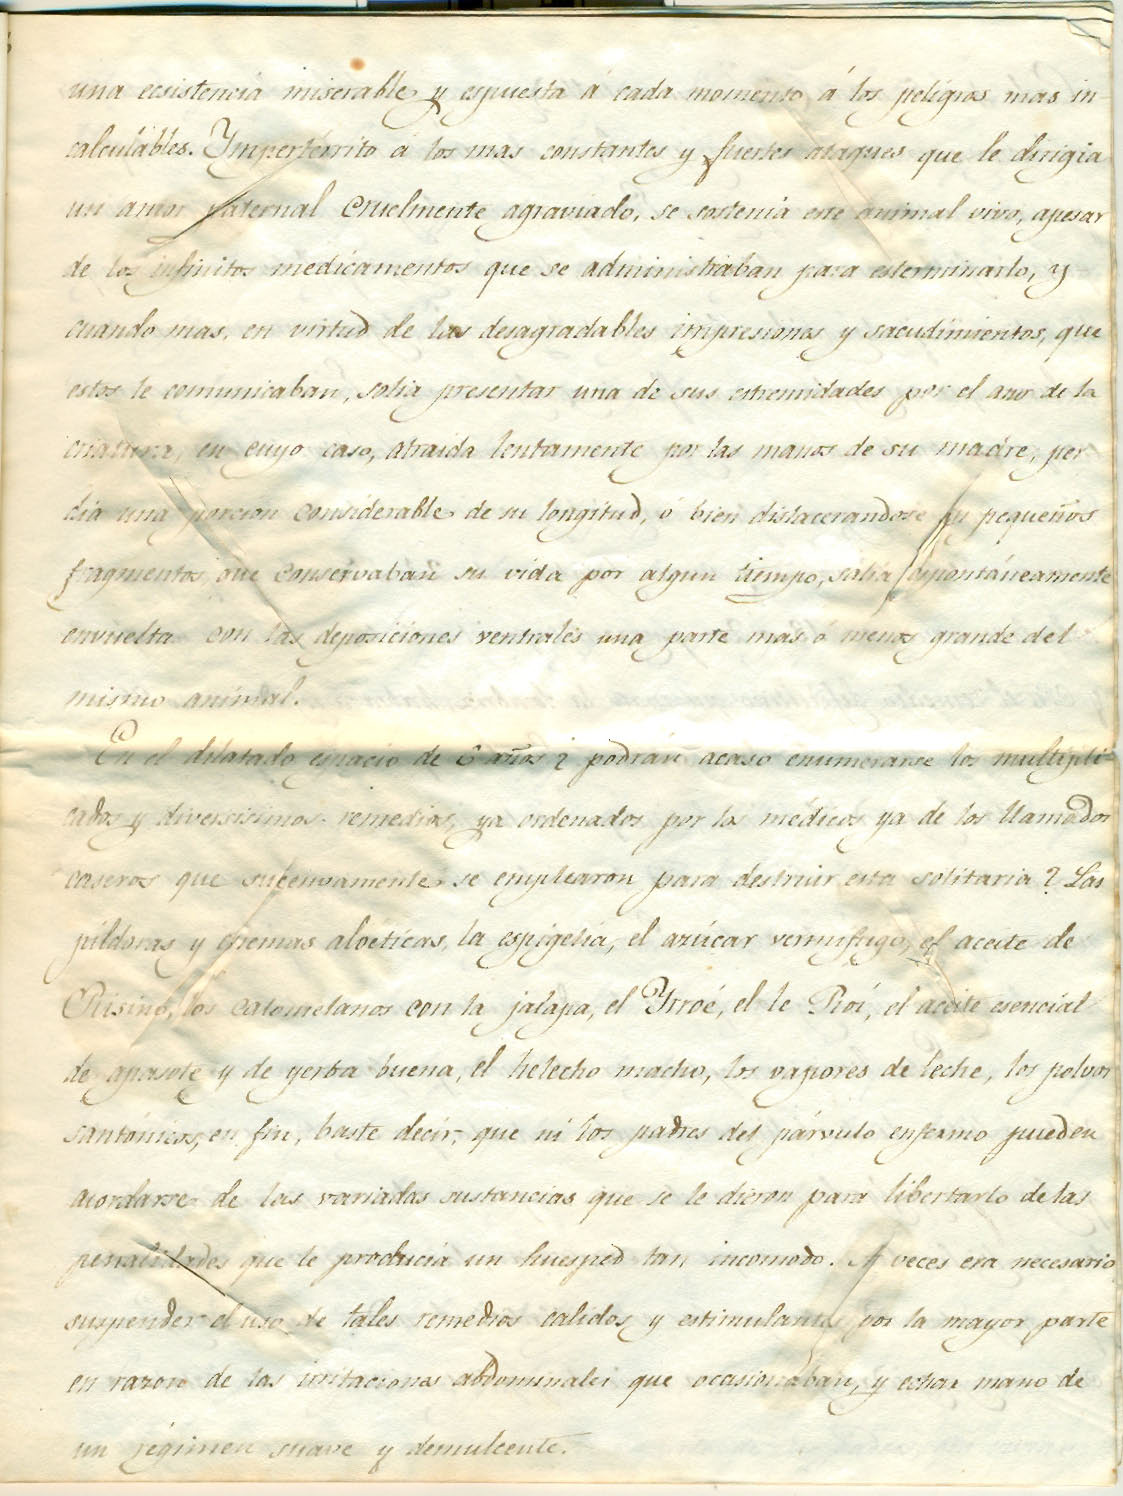 una ecsistencia miserable y espuesta á cada momento á los peligros mas in-
calculábles. Ympertérrito á los mas constantes y fuertes ataques que le dirigia
un amor paternal cruelmente agraviado, se sostenia este animal vivo, apesar
de los infinitos medicamentos que se administraban para esterminarlo, y
cuando mas, en virtud de las desagradables impresiones y sacudimientos, que
estos le comunicaban, solia presentar una de sus estremidades por el ano de la
criatura, en cuyo caso, atraida lentamente por las manos de su madre, per
dia una porcion considerable de su longitud, ó bien dislacerandose en pequeños
fragmentos, que conservaban su vida por algun tiempo, salia espontáneamente
envuelta con las deposiciones ventrales una parte mas ó menos grande del
mismo animal.
En el dilatado espacio de 6 años ¿ podrán acaso enumerarse los multipli-
cados y diversisimos remedios, ya ordenados por los médicos ya de los llamados
caseros que sucesivamente se emplearon para destruir esta solitaria? Las
píldoras y enemas aloéticas, la espigelia, el azúcar vermifugo, el aceite de
Risino, los calomelanos con la jalapa, el Yrroé, el le Roi, el aceite esencial
de apasote y de yerba buena, el helecho macho, los vapores de leche, los polvos
santónicos, en fin, baste decir, que ni los padres del párvulo enfermo pueden
acordarse de las variadas sustancias que se le dieron para libertarlo de las
penalidades que le producia un huesped tan incomodo. A veces era necesario
suspender el uso de tales remedios calidos y estimulantes por la mayor parte
en razon de las irritaciones abdominales que ocasionaban, y echar mano de
un régimen suave y demulcente.